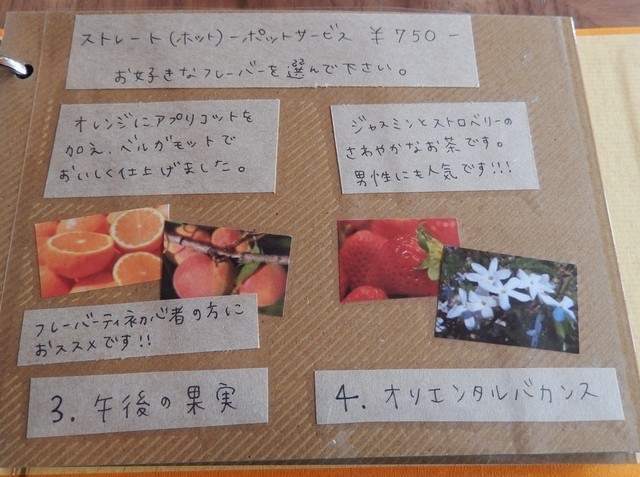 ストレート(ホット)ーポットサービス ¥750-
お好きなフレーバーを選んで下さい。
オレンジにアプリコットを
加え、ベルガモットで
おいしく仕上げました。
フレーバーティ初心者の方に
おススメです!!
3. 午後の果実
ジャスミンとストロベリーの
さわやかなお茶です。
男性にも人気です!!!
4. オリエンタルバカンス